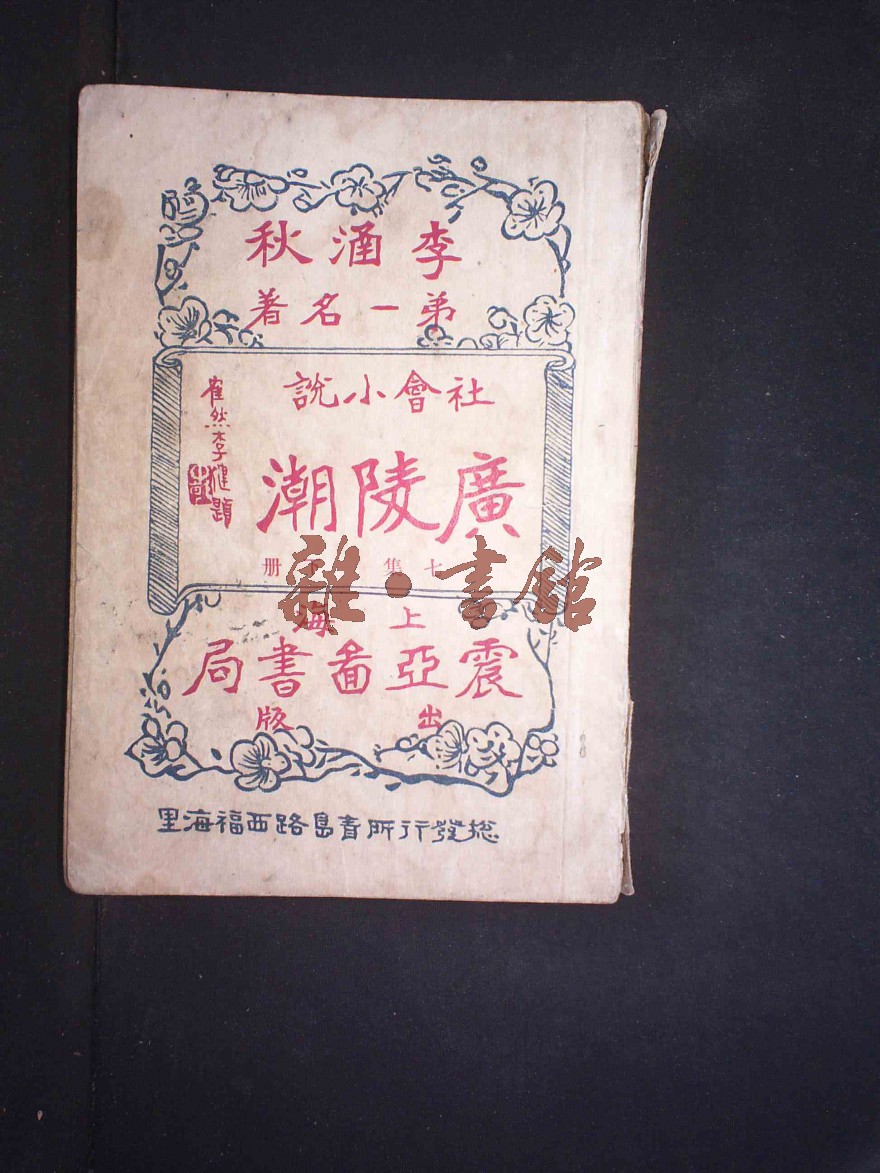 李涵秋
弟一名著
社會小說
廣陵潮
七集下册
崔然李健題
上海
震亞啚書局
出版
総發行所青島路西福海里
雜·書館